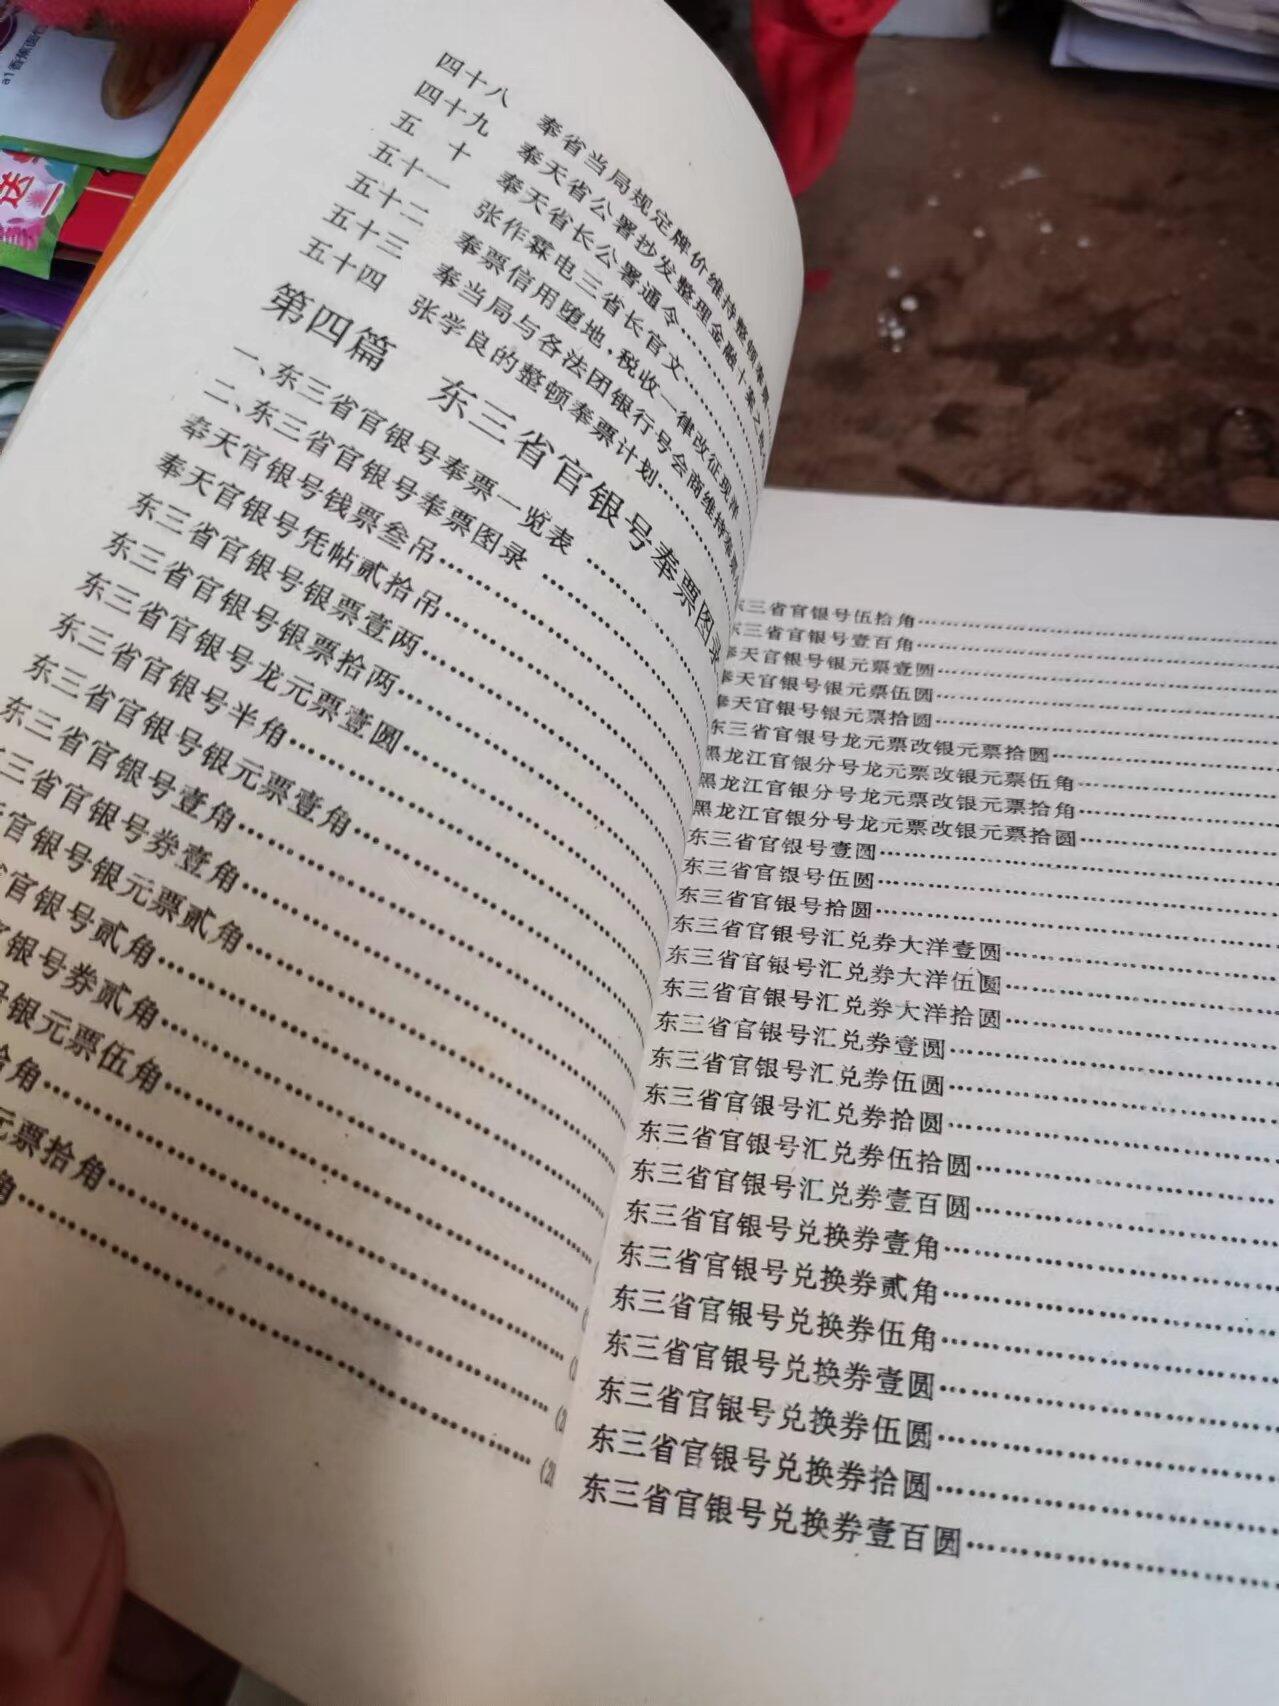 四十八 奉省当局规定牌价维持整顿奉票
四十九 奉天省公署抄发整理金融十条之
五十 奉天省长公署通令
五十一 张作霖电三省长官文
五十二 奉票信用堕地,税收一律改征现洋
五十三 奉当局与各法团银行号会商维持奉票
五十四 张学良的整顿奉票计划
第四篇 东三省官银号奉票图录
一、东三省官银号奉票一览表
二、东三省官银号奉票图录
奉天官银号钱票叁吊
奉天官银号凭帖贰拾吊
东三省官银号银票壹两
东三省官银号银票拾两
东三省官银号龙元票壹圆
东三省官银号半角
东三省官银号银元票壹角
东三省官银号壹角
三省官银号券壹角
官银号银元票贰角
省官银号贰角
官银号券贰角
号银元票伍角
拾角
元票拾角
角
东三省官银号伍拾角
东三省官银号壹百角
奉天官银号银元票壹圆
奉天官银号银元票伍圆
奉天官银号银元票拾圆
东三省官银号龙元票改银元票拾圆
黑龙江官银分号龙元票改银元票伍角
黑龙江官银分号龙元票改银元票拾角
黑龙江官银分号龙元票改银元票拾圆
东三省官银号壹圆
东三省官银号伍圆
东三省官银号拾圆
东三省官银号汇兑券大洋壹圆
东三省官银号汇兑券大洋伍圆
东三省官银号汇兑券大洋拾圆
东三省官银号汇兑券壹圆
东三省官银号汇兑券伍圆
东三省官银号汇兑券拾圆
东三省官银号汇兑券伍拾圆
东三省官银号汇兑券壹百圆
东三省官银号兑换券壹角
东三省官银号兑换券贰角
东三省官银号兑换券伍角
东三省官银号兑换券壹圆
东三省官银号兑换券伍圆
东三省官银号兑换券拾圆
东三省官银号兑换券壹百圆